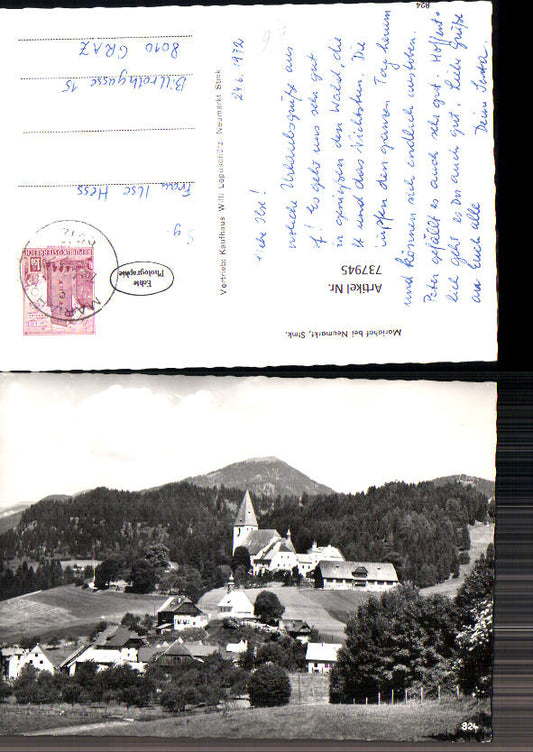 824
Mariahof bei Neumarkt, Stmk.
Artikel Nr.
737945
24.6.1972
Liebe Ilse!
Urlaubsgrüße aus
! Es geht uns sehr gut
genießen den Wald, die
und das Nichtstun. Die
den ganzen Tag herum
und können sich endlich austoben.
Peter gefällt es auch sehr gut. Hoffent-
lich geht es Dir auch gut. Liebe Grüße
an Euch alle
Deine
Vertrieb: Kaufhaus Willi Lopuschütz, Neumarkt Stmk
Echte
Photographie
REPUBLIK ÖSTERREICH
Frau Ilse Hess
Billrothgasse 15
8010 GRAZ
824